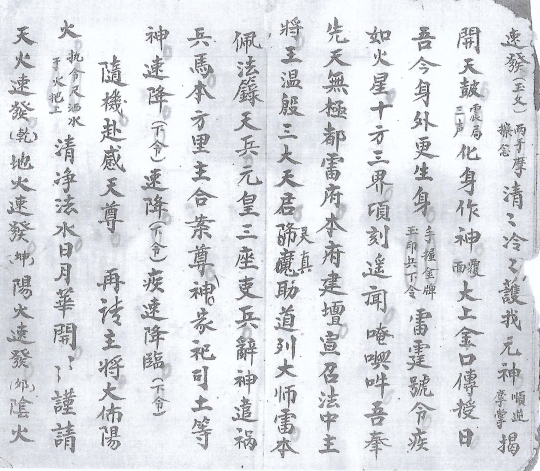 速發(玉文)兩手摩擦念清〻冷〻護我元神順逆掌掌揭
開天鼓震局三戶化身作神覆面大上金口傳授日
吾今身外更生身手撞金牌玉印共下令雷霆號令疾
如火星十方三界頃刻遙聞唵㗲吽吾奉
先天無極都雷府本府建壇宣召法中主
將王溫殷三大天君蕩魔昊真助道列大師雷本
佩法籙天兵元皇三座吏兵辭神遣禍
兵馬本方里主合業尊神家祀司土等
神速降(下令)速降(下令)疾速降臨(下令)
隨機赴感天尊 再請主將大佈陽
火執令尺洒水手火把工清净法水日月華開〻謹請
天火速發(乾)地火速發(坤)陽火速發(卯)陰火